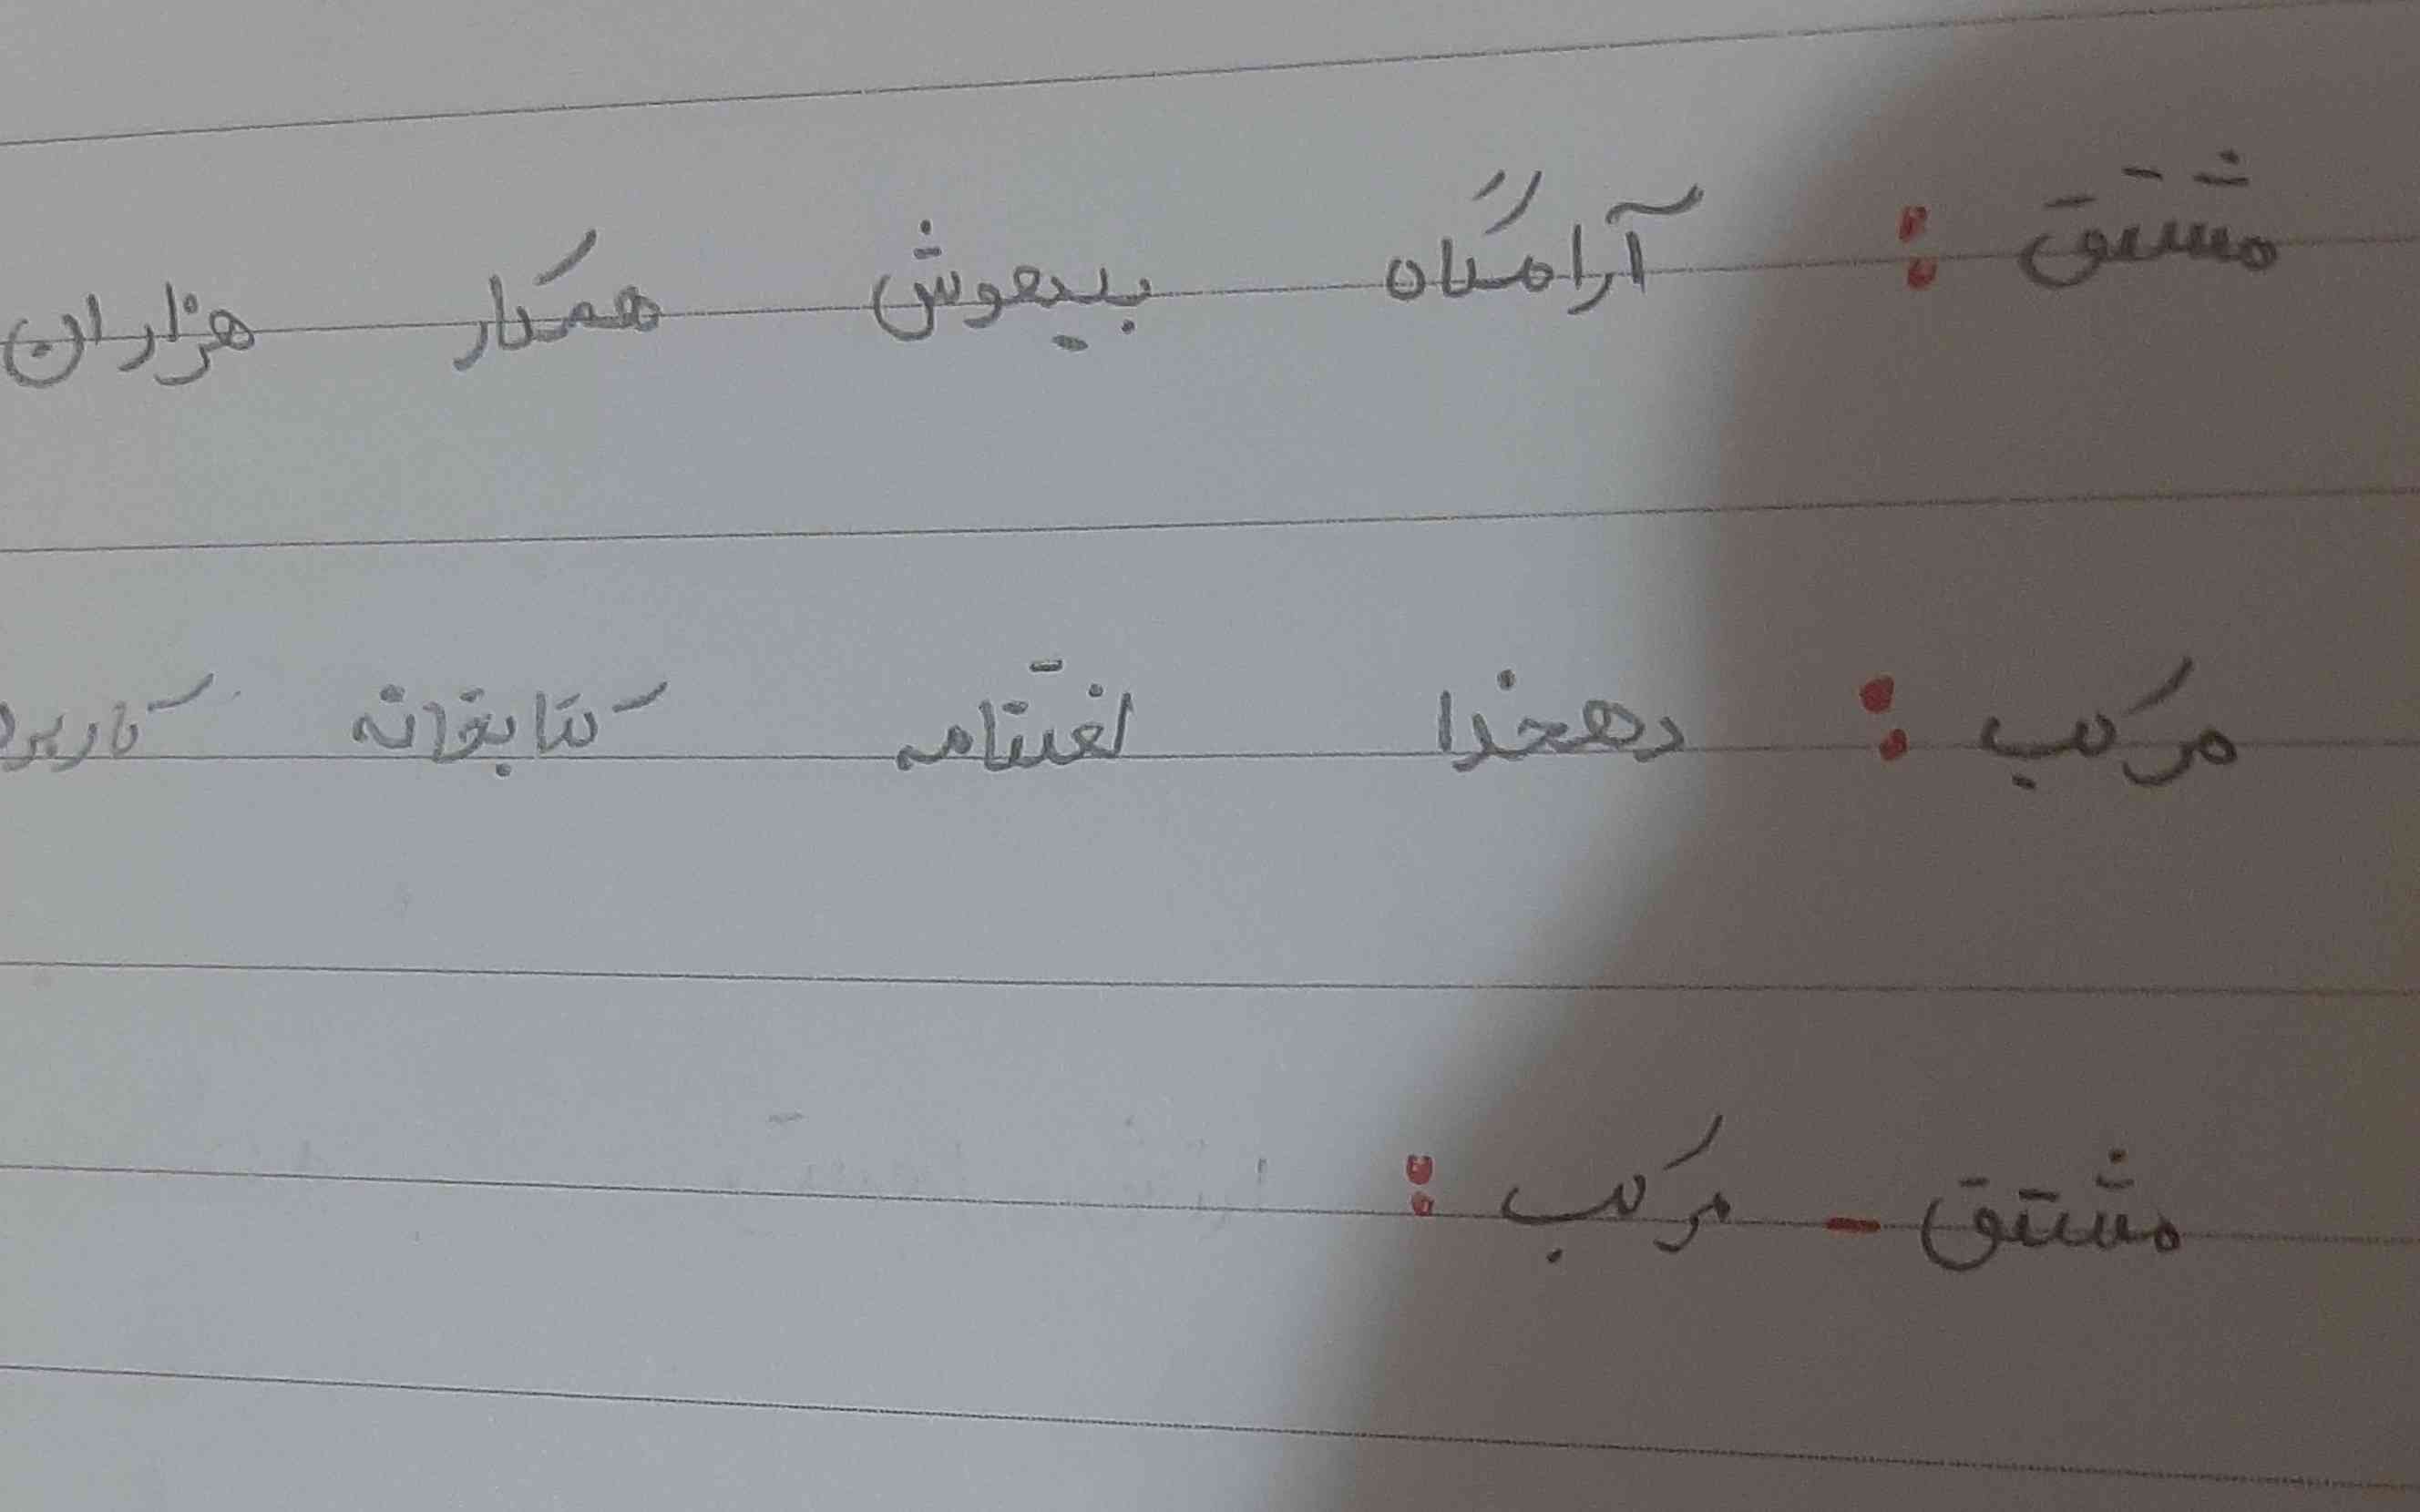 مشتق : آرامگاه بیهوش همکار هزاران
مرکب : دهخدا لغتنامه کتابخانه کاربرد
مشتق - مرکب :